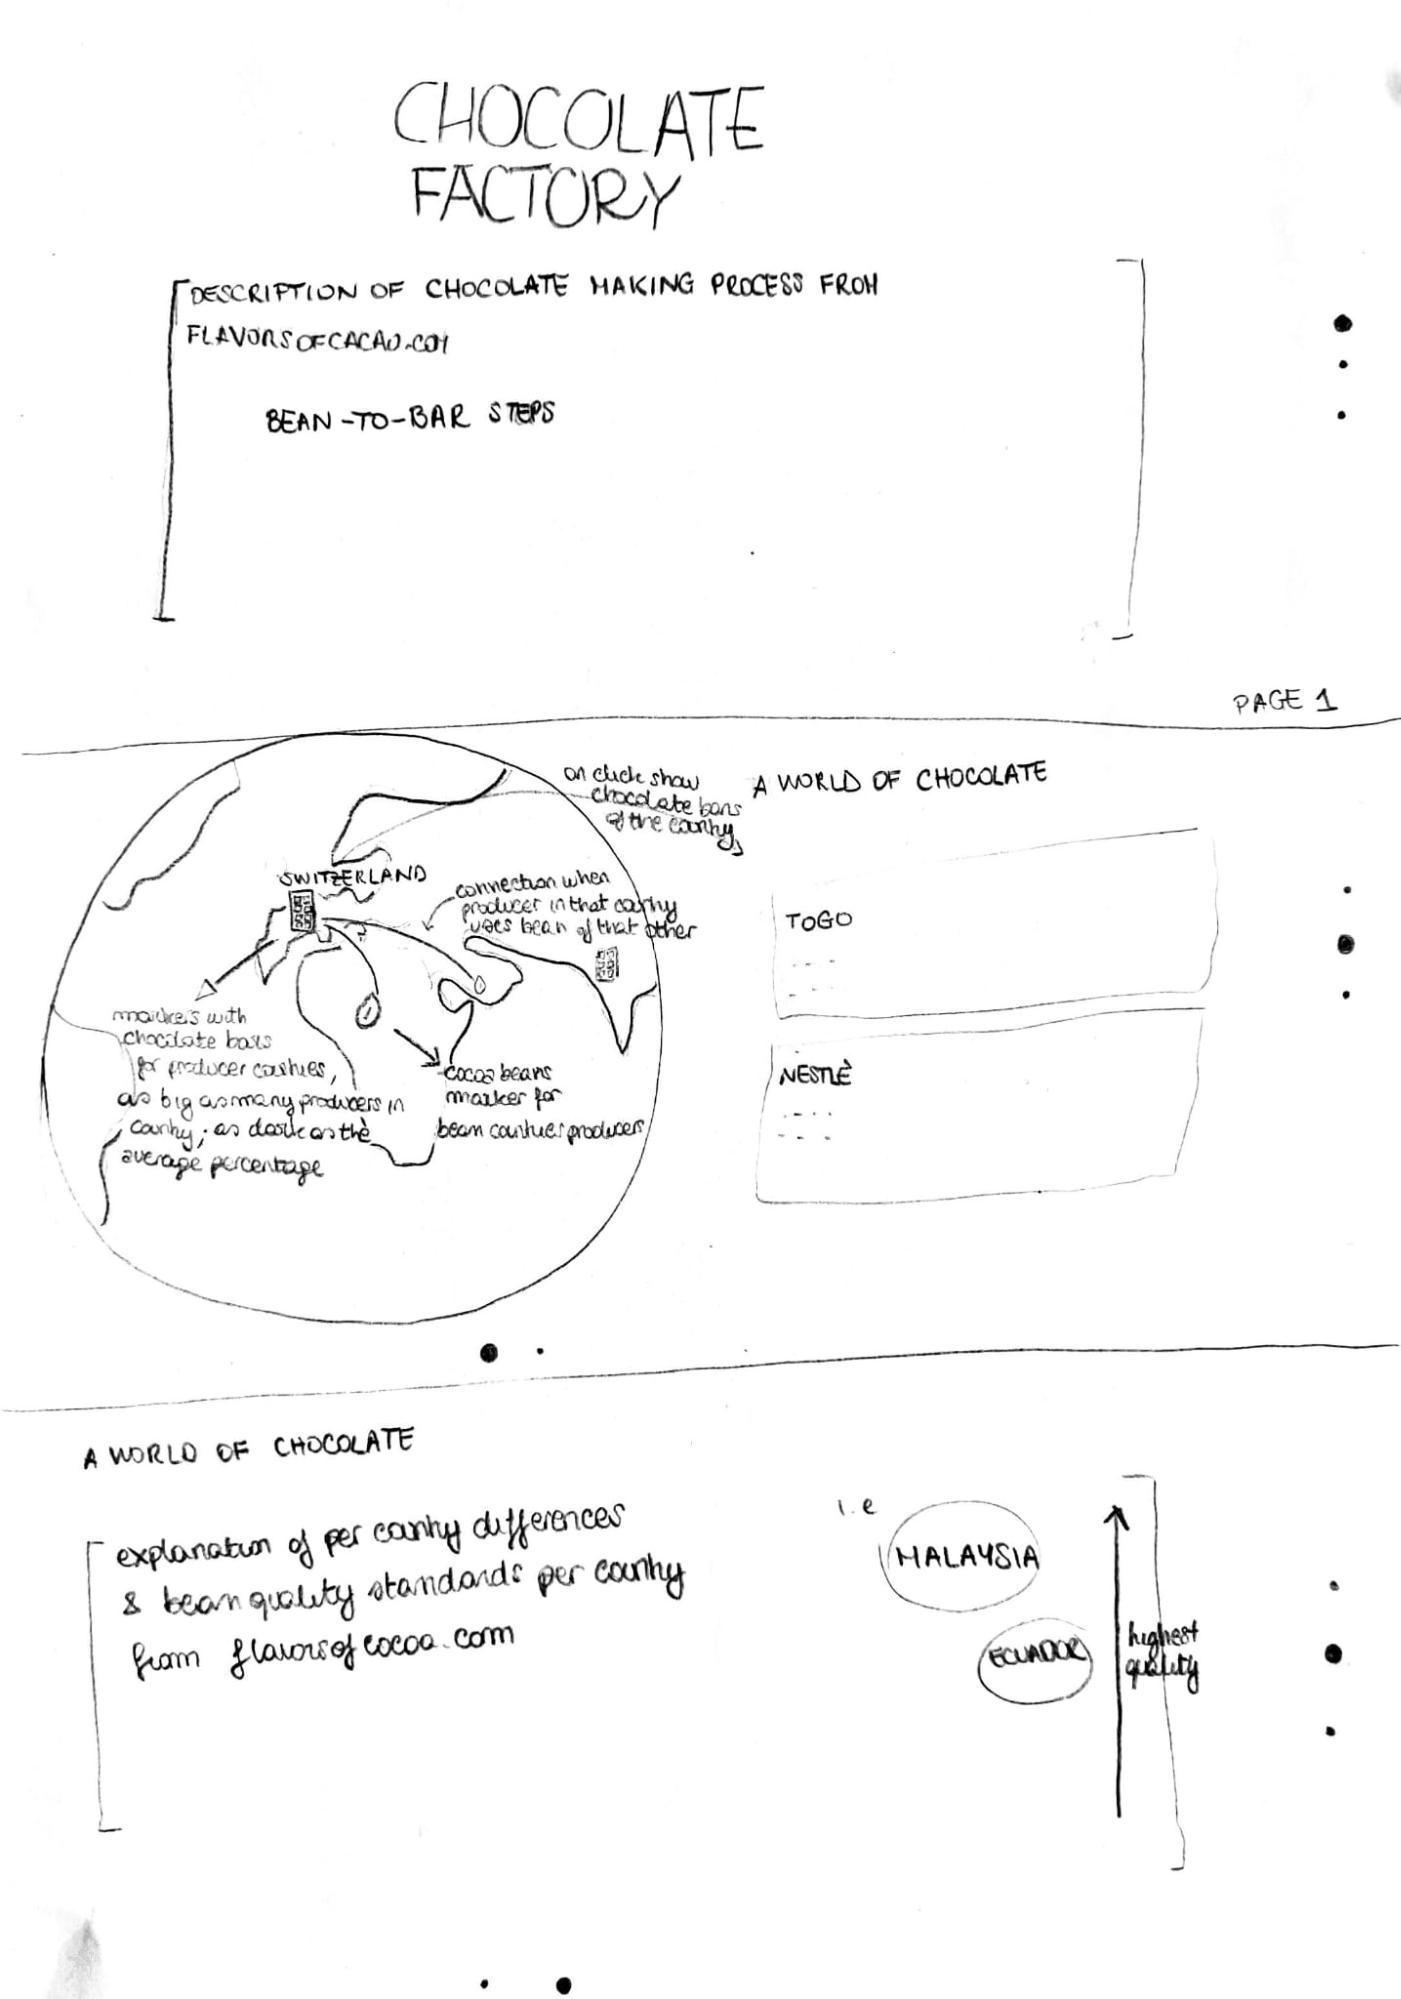 CHOCOLATE
FACTORY
DESCRIPTION OF CHOCOLATE MAKING PROCESS FROM
FLAVORSOFCACAO.COM
BEAN-TO-BAR STEPS
PAGE 1
on click show
chocolate bars
of the country
A WORLD OF CHOCOLATE
SWITZERLAND
connection when
producer in that country
uses bean of that other
TOGO
markers with
chocolate bars
for producer countries,
as big as many producers in
country; as dark as the
average percentage
cocoa beans
marker for
bean countries producers
NESTLÈ
A WORLD OF CHOCOLATE
explanation of per country differences
& bean quality standards per country
from flavorsofcocoa.com
i.e
MALAYSIA
ECUADOR
highest
quality